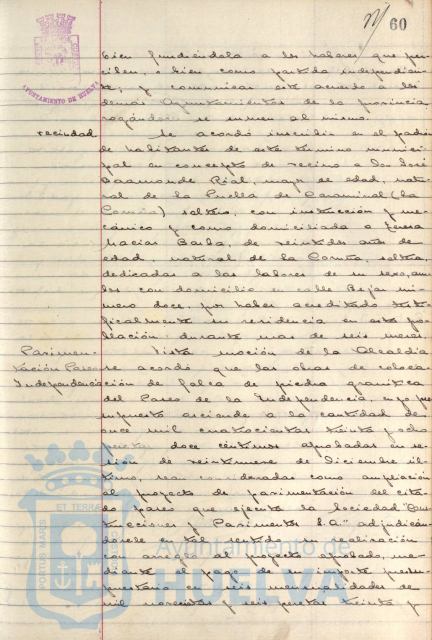 60
AYUNTAMIENTO DE HUELVA
bien fundiéndola a los haberes que per-
ciben, o bien como partida independien-
te; y comunicar este acuerdo a los
demás Ayuntamientos de la provincia,
rogándoles se sumen al mismo.
vecindad
Se acordó inscribir en el padrón
de habitantes de este término munici-
pal en concepto de vecino a Don José
Baamonde Rial, mayor de edad, natu-
ral de la Puebla de Caraminal (La
Coruña) soltero, con instrucción y me-
cánico y como domiciliada a Teresa
Macías Barba, de veintidós años de
edad, natural de la Coruña, soltera,
dedicada a las labores de su sexo, am-
bos con domicilio en calle Béjar nú-
mero doce, por haber acreditado
su residencia en esta po-
blación durante más de seis meses.
Pavimen-
tación Paseo
Independencia
Vista moción de la Alcaldía
se acordó que las obras de coloca-
ción de faha de piedra granítica
del Paseo de la Independencia, cuyo pre-
supuesto asciende a la cantidad de
once mil cuatrocientas treinta y ocho
pesetas doce céntimos aprobadas en se-
sión de veintinueve de Diciembre úl-
timo, sean consideradas como ampliación
al proyecto de pavimentación del cita-
do paseo que ejecuta la Sociedad "Cons-
trucciones y Pavimentos S.A." adjudicán-
dosele en tal sentido su realización
con arreglo al proyecto aprobado, me-
diante el pago de su importe presu-
puestario en seis mensualidades de
mil novecientas y seis pesetas treinta y
PORTUS MARIS ET TERRAE
Ayuntamiento de
HUELVA